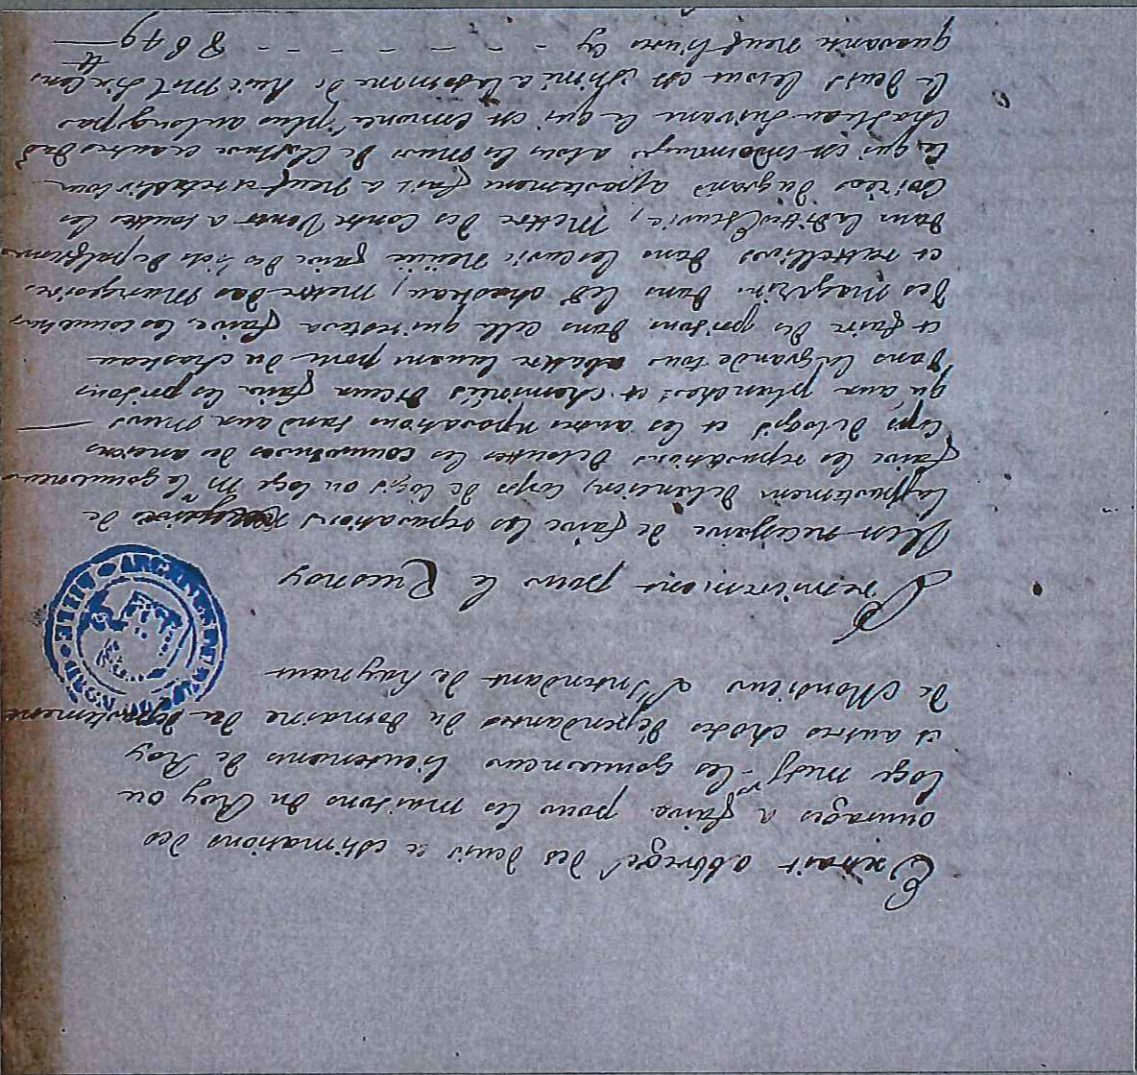 Extrait abbregé des devis et estimations des
ouvrages a faire pour les maisons du Roy ou
loge mess.rs les gouverneurs lieutenans de Roy
et autres choses dependantes du domaine du departement
de Monsieur l'Intendant de haynaut
Premierement pour le Quesnoy
Il est necessaire de faire les reparations de
lappartement delancien corps de logis ou loge Mr le gouverneur
faire les reparations de toutes les couvertures des anciens
corps de logis et les autres reparations tant aux murs
qu'aux planchers et cheminées diceux faire les prisons
dans la grande tour abattre lavant porte du chasteau
et faire des prisons dans celle qui restera faire les couvertures
des magazins dans led. chasteau, mettre des mangeoires
et rattelliers dans lescurie neuve faire des lits de palfreniers
dans laditte Escurie, Mettre des Contre Vents a toutes les
croisées du grand appartement fait a neuf et retablir tout
ce qui est endommagé a tous les murs de closture et autres dud
chasteau suivant ce qui est enoncé plus au long par
le devis le tout est estimé a la somme de huit mil six cens
quarante neuf livres cy - - - - - - 8649 ₶
ARCHIVES DU NORD LILLE